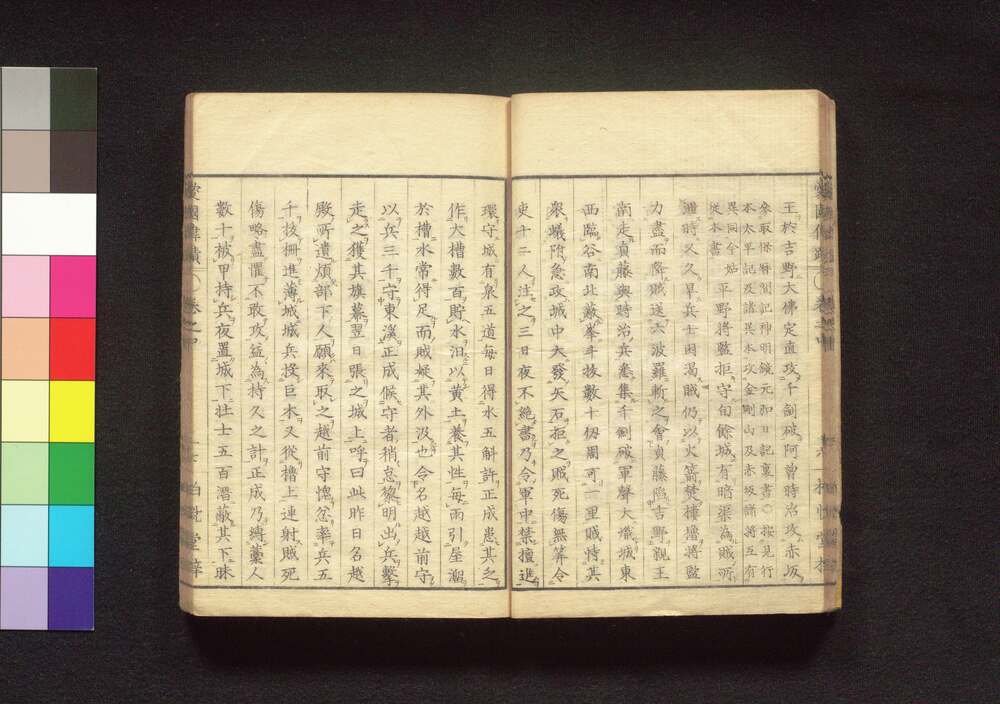 王於吉野大佛定直攻千劍破阿曾時治攻赤坂
參取保曆間記神明鏡元弘日記裏書○按見行
本太平記及諸異本攻金剛山及赤坂諸將互有
異同今姑
從本書
平野將監拒守旬餘城有暗渠為賊所
時又久旱兵士困渴賊仍以火箭焚樓櫓將監
力盡而降賊送六波羅斬之會貞藤陷吉野親王
南走貞藤與時治兵悉集千劍破軍聲大熾城東
西臨谷南北蔽峯斗拔數十仞周可一里賊恃其
衆蟻附急攻城中大發矢石拒之賊死傷無算令
吏十二人注之三日夜不絶書乃令軍中禁擅進
環守城有泉五道每日得水五斛許正成患其之
作大槽數百貯水汨以黃土養其性每雨引屋溜
於槽水常得足而賊疑其外汲也令名越越前守
以兵三千守東溪正成候守者稍怠黎明出兵擊
走之獲其旗幕翌日張之城上呼曰此昨日名越
殿所遺煩部下人願來取之越前守愧忿率兵五
千拔柵進薄城城兵投巨木又從櫓上連射賊死
傷略盡懼不敢攻益為持久之計正成乃縛藁人
數十被甲持兵夜置城下壯士五百潛蔽其下昧
愛國偉績
卷之